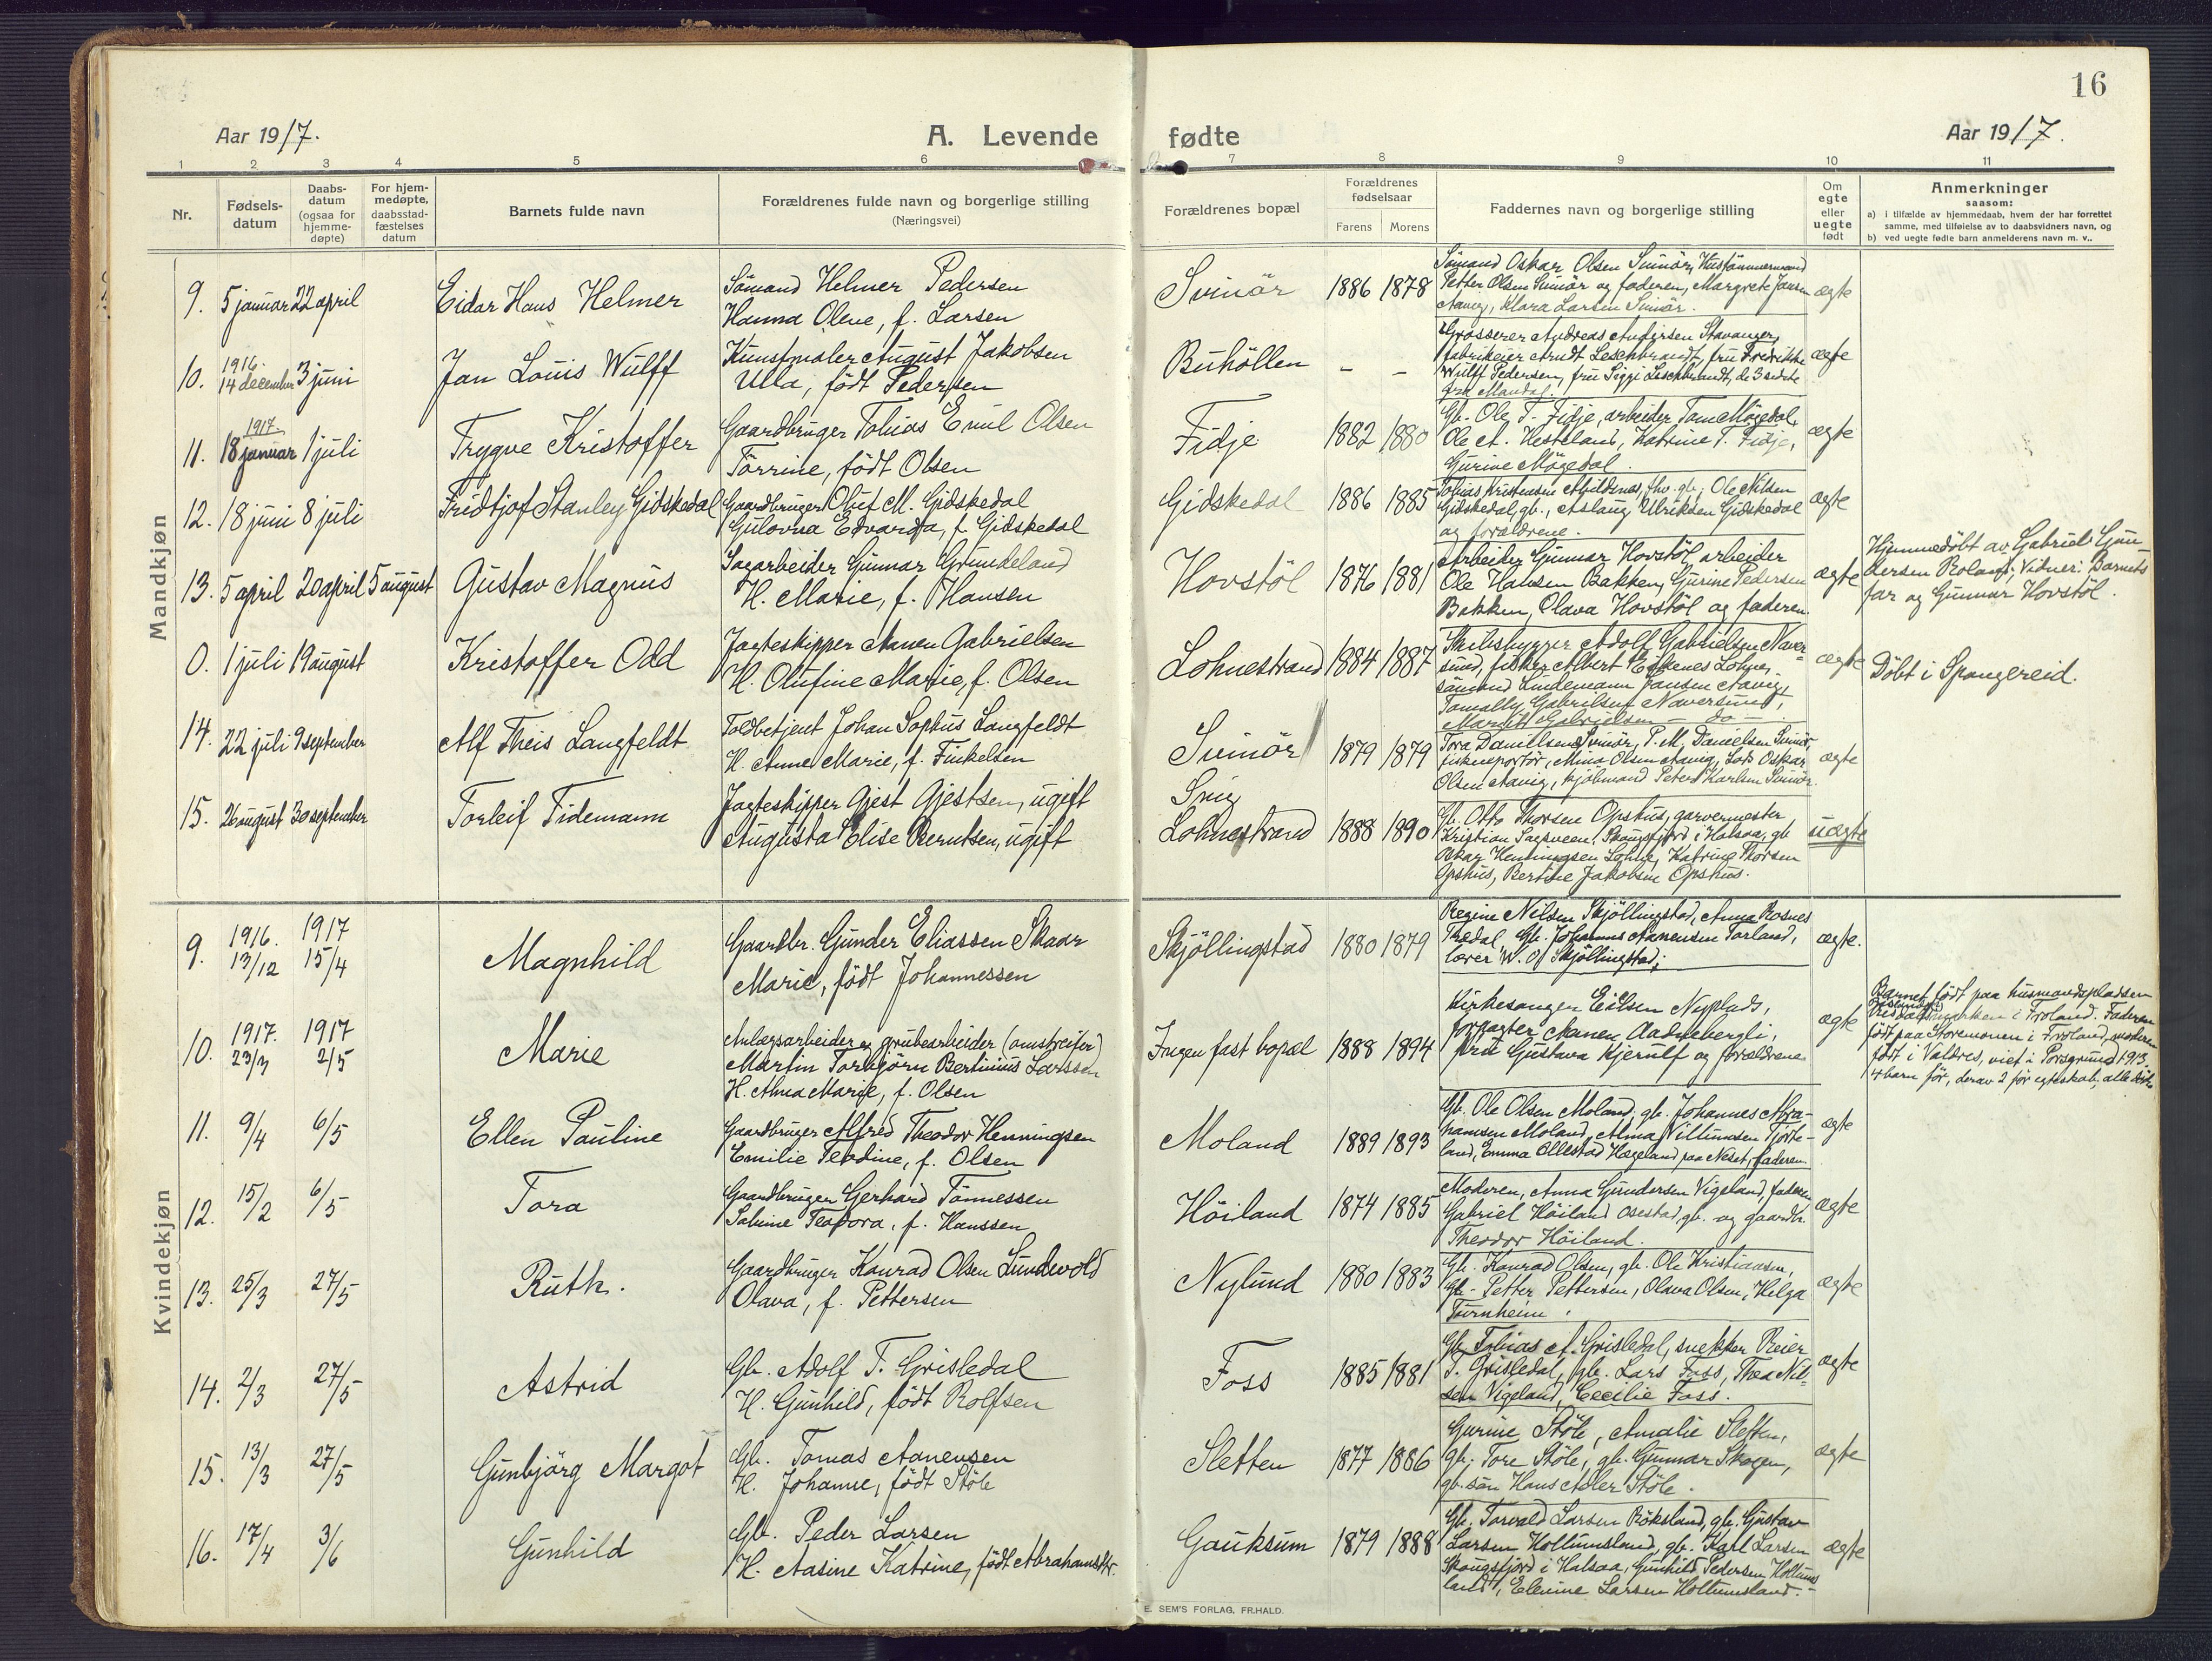 16
Aar 1917.
A. Levende fødte
Aar 1917.
1 2 3 4 5 6 7 8 9 10 11
Nr.
Fødsels-
datum
Daabs-
datum
(ogsaa for
hjemme-
døpte)
For hjem-
medøpte,
daabsstad-
fæstelses
datum
Barnets fulde navn
Forældrenes fulde navn og borgerlige stilling
(Næringsvei)
Forældrenes bopæl
Forældrenes
fødselsaar
Farens Morens
Faddernes navn og borgerlige stilling
Om
egte
eller
uegte
født
Anmerkninger
saasom:
a) i tilfælde av hjemmedaab, hvem der har forrettet
samme, med tilføielse av to daabsvidners navn, og
b) ved uegte fødte barn anmelderens navn m. v..
Mandkjøn
9. 5 januar 22 april Eidar Hans Helmer
Sömand Helmer Pedersen
Hanna Olene, f. Larsen
Svinör 1886 1878
Sömand Oskar Olsen Svinör, Hustömmermand
Petter Olsen Svinör og faderen, Margrete Jansen
Aavig, Klara Larsen Svinör.
ægte
10. 1916. 14 december 3 juni Jan Louis Wulff
Kunstmaler August Jakobsen
Ulla, født Pedersen
Buhöllen – –
Grosserer Andreas Andersen Stavanger,
fabrikeier Arndt Leschbrandt, fru Fredrikke
Wulff Pedersen, fru Siggi Leschbrandt, de 3 sidste
fra Mandal.
ægte
11. 1917. 18 januar 1 juli Trygve Kristoffer
Gaardbruger Tobias Emil Olsen
Törrine, født Olsen
Fidje 1882 1880
Gb. Ole T. Fidje, arbeider Tom Mögedal,
Ole A. Hesteland, Katrine T. Fidje,
Gurine Mögedal.
ægte
12. 18 juni 8 juli Fridtjof Stanley Gidskedal
Gaardbruger Oluf M. Gidskedal
Gulovna Edvarda, f. Gidskedal
Gidskedal 1886 1885
Tobias Kristensen fhv. gb., Ole Nilsen
Gidskedal, gb., Aslaug Ulriksen Gidskedal
og forældrene.
ægte
13. 5 april 20 april 5 august Gustav Magnus
Sagarbeider Gunnar Grundeland
H. Marie, f. Hansen
Hovstöl 1876 1881
Arbeider Gunnar Hovstöl arbeider
Ole Hansen Bakken, Gurine Pedersen
Bakken, Olava Hovstöl og faderen.
ægte
Hjemmedöbt av Gabriel Gun-
dersen Roland; Vidner: Barnets
far og Gunnar Hovstöl.
0. 1 juli 19 august Kristoffer Odd
Jagteskipper Aanen Gabrielsen
H. Olufine Marie, f. Olsen
Lohnestrand 1884 1887
Adolf Gabrielsen Naver-
sund, fisker Albert Lohne,
sömand Lindemann Jansen Aavig,
Gabrielsen Naversund,
Margit Gabrielsen – do –
ægte
Döbt i Spangereid.
14. 22 juli 9 september Alf Theis Langfeldt
Toldbetjent Johan Sophus Langfeldt
H. Anne Marie, f. Finkelsen
Svinör 1879 1879
Tora Danielsen Svinör, P. M. Danielsen Svinör,
fiskeexportör, Mina Olsen Aavig, Lods Oskar
Olsen Aavig, kjöbmand Peter Karlsen Svinör.
ægte
15. 26 august 30 september Torleif Tidemann
Jagteskipper Gjest Gjestsen, ugift
Augusta Elise Berntsen, ugift
Snig
Lohnestrand 1888 1890
Gb. Otto Thorsen Opshus, garvermester
Kristian Skougsfjord i Halsaa, gb
Oskar Henningsen Lohne, Katrine Thorsen
Opshus, Bertine Jakobsen Opshus.
uægte
Kvindekjøn
9. 1916. 13/12 1917 15/4 Magnhild
Gaardbr. Gunder Eliassen Skaar
Marie, født Johannessen
Skjöllingstad 1880 1879
Regine Nilsen Skjöllingstad, Anna Rosnes
Tredal, Gb. Johannes Aanensen Torland,
lærer W. O. Skjöllingstad;
ægte.
10. 1917. 23/3 1917 2/5 Marie
Anlægsarbeider og grubearbeider (omstreifer)
Martin Torbjörn Bertinius Larssen
H. Alma Marie, f. Olsen
Ingen fast bopæl 1888 1894
Kirkesanger Eilsen Nyplads,
forpagter Aanen Aadnebergli,
fru Gustava Kjerulf og forældrene
ægte
Barnet født paa husmandspladsen
i Froland. Faderen
født paa Storemonen i Froland, moderen
født i Valdres, viet i Porsgrund 1913.
4 barn för, derav 2 för egteskab, alle döde
11. 9/4 6/5 Ellen Pauline
Gaardbruger Alfred Theodor Henningsen
Emilie Teodine, f. Olsen
Moland 1889 1893
Gb. Ole Olsen Moland, gb. Johannes Abra-
hamsen Moland, Alma Villumsen Tjörte-
land, Emma Ollestad Hægeland paa Neset, faderen.
ægte
12. 15/2 6/5 Tora
Gaardbruger Gerhard Tönnessen
Sabine Teodora, f. Hanssen
Höiland 1874 1885
Moderen, Anna Gundersen Vigeland, faderen
Gabriel Höiland Osestad, gb. og gaardbr.
Theodor Höiland.
ægte
13. 25/3 27/5 Ruth.
Gaardbruger Konrad Olsen Sundevold
Olava, f. Pettersen
Nylund 1880 1883
Gb. Konrad Olsen, gb. Ole Kristiansen,
Gb. Petter Pettersen, Olava Olsen, Helga
Turnheim.
ægte
14. 2/3 27/5 Astrid
Gb. Adolf T. Grisledal
H. Gunhild, född Rolfsen
Foss 1885 1881
Gb. Tobias A. Grisledal, snekker Reier
T. Grisledal, gb. Lars Foss, Thea Nil-
sen Vigeland, Cecilie Foss.
ægte
15. 13/3 27/5 Gunbjörg Margot
Gb. Tomas Aanensen
H. Johanne, född Stöle
Sletten 1877 1886
Gurine Stöle, Amalie Sletten,
gb. Tore Stöle, gb. Gunnar Skogen,
gb. sön Hans Adler Stöle.
ægte
16. 17/4 3/6 Gunhild
Gb. Peder Larsen
H. Aasine Katrine, född Abrahamsdtr.
Gauksum 1879 1888
Gb. Torvald Larsen Röksland, gb. Gustav
Larsen Hollumsland, gb. Karl Larsen
Skougsfjord i Halsaa, Gunhild Pedersen Hollums
land, Elenine Larsen Hollumsland.–
ægte
E. SEM'S FORLAG, FR.HALD.